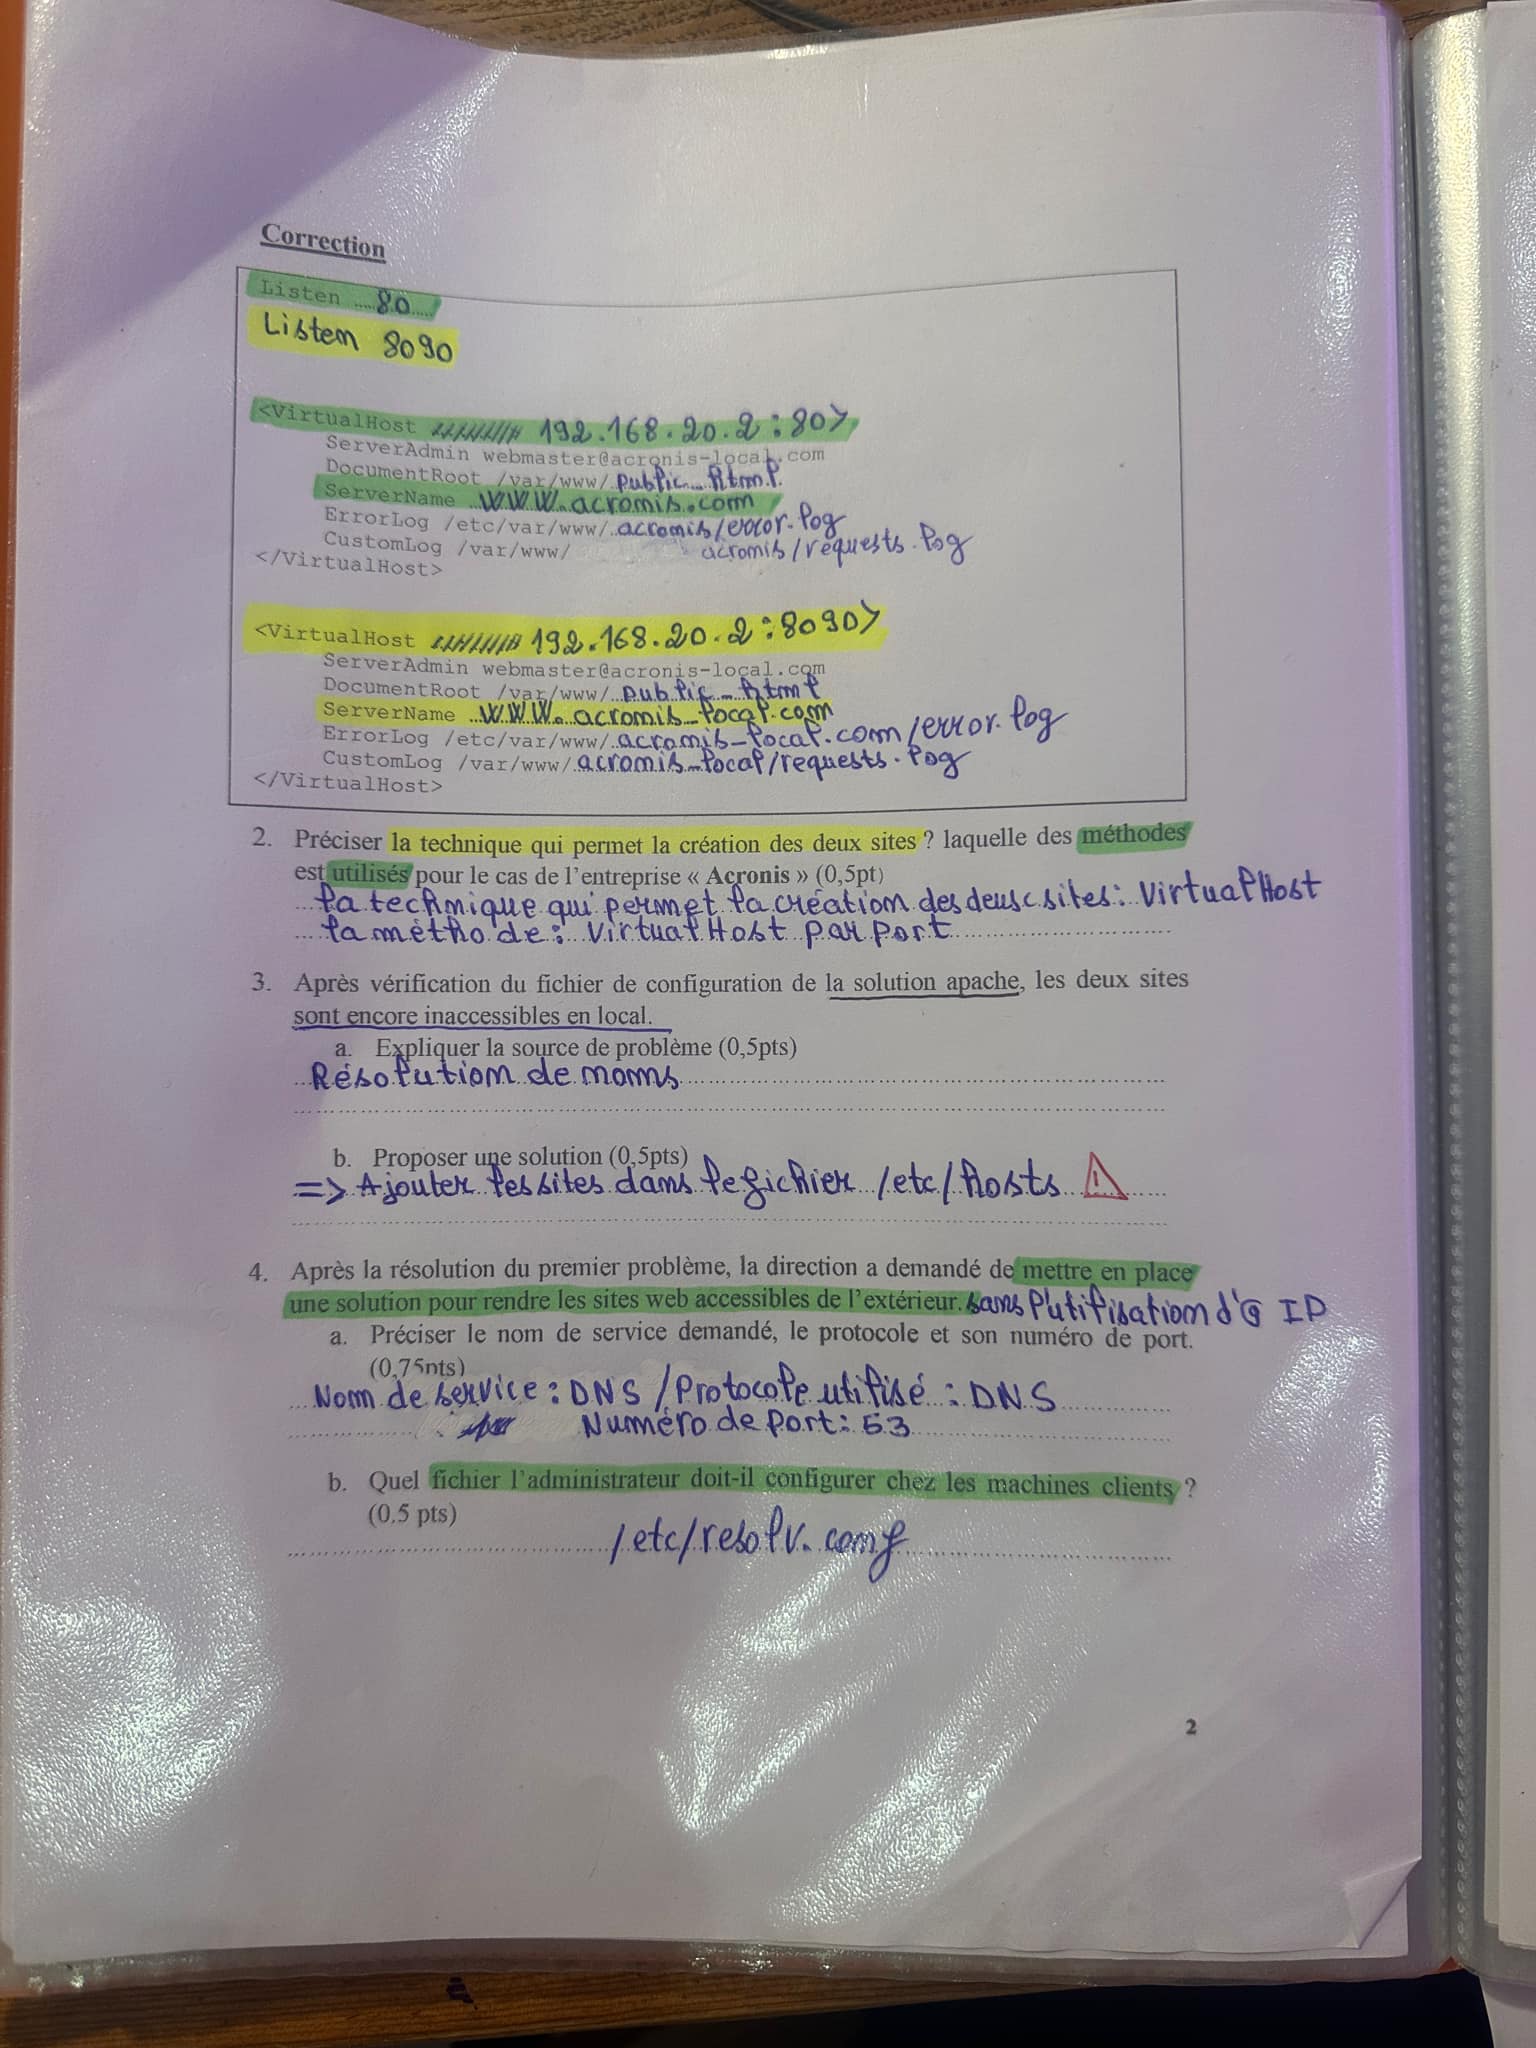 Correction
Listen ....80.....
Listen 8090
<VirtualHost 192.168.20.2:80>
ServerAdmin webmaster@acronis-local.com
DocumentRoot /var/www/.public_html
ServerName ..WWW.acronis.com
ErrorLog /etc/var/www/..acronis/error.log
CustomLog /var/www/ acronis/requests.log
</VirtualHost>
<VirtualHost 192.168.20.2:8090>
ServerAdmin webmaster@acronis-local.com
DocumentRoot /var/www/..public_html
ServerName ..WWW.acronis_local.com
ErrorLog /etc/var/www/..acronis_local.com/error.log
CustomLog /var/www/.acronis_local/requests.log
</VirtualHost>
2. Préciser la technique qui permet la création des deux sites ? laquelle des méthodes
est utilisés pour le cas de l'entreprise « Acronis » (0,5pt)
la technique qui permet la création des deux sites : VirtualHost
la méthode : VirtualHost par port
3. Après vérification du fichier de configuration de la solution apache, les deux sites
sont encore inaccessibles en local.
a. Expliquer la source de problème (0,5pts)
Résolution de noms
b. Proposer une solution (0,5pts)
=> Ajouter les sites dans le fichier /etc/hosts
4. Après la résolution du premier problème, la direction a demandé de mettre en place
une solution pour rendre les sites web accessibles de l'extérieur. sans l'utilisation d'@ IP
a. Préciser le nom de service demandé, le protocole et son numéro de port.
(0,75pts)
Nom de service : DNS / Protocole utilisé : DNS
Numéro de port : 53
b. Quel fichier l'administrateur doit-il configurer chez les machines clients ?
(0.5 pts)
/etc/resolv.conf
2